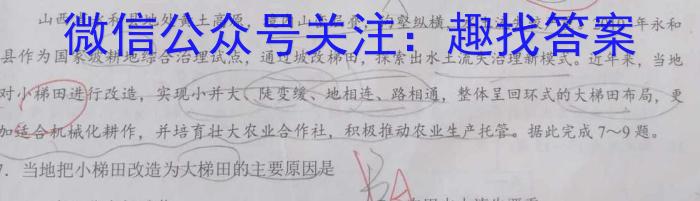 山西
黄土高原
沟壑纵横
年永和
微信公众号关注：趣找答案
县作为国家坡耕地综合治理试点，通过坡改梯田，探索出水土流失治理新模式。近年来，当地
对小梯田进行改造，实现小并大、陡变缓、地相连、路相通，整体呈回环式的大梯田布局，更
加适合机械化耕作，并培育壮大农业合作社，积极推动农业生产托管。据此完成7～9题。
7．当地把小梯田改造为大梯田的主要原因是
BA